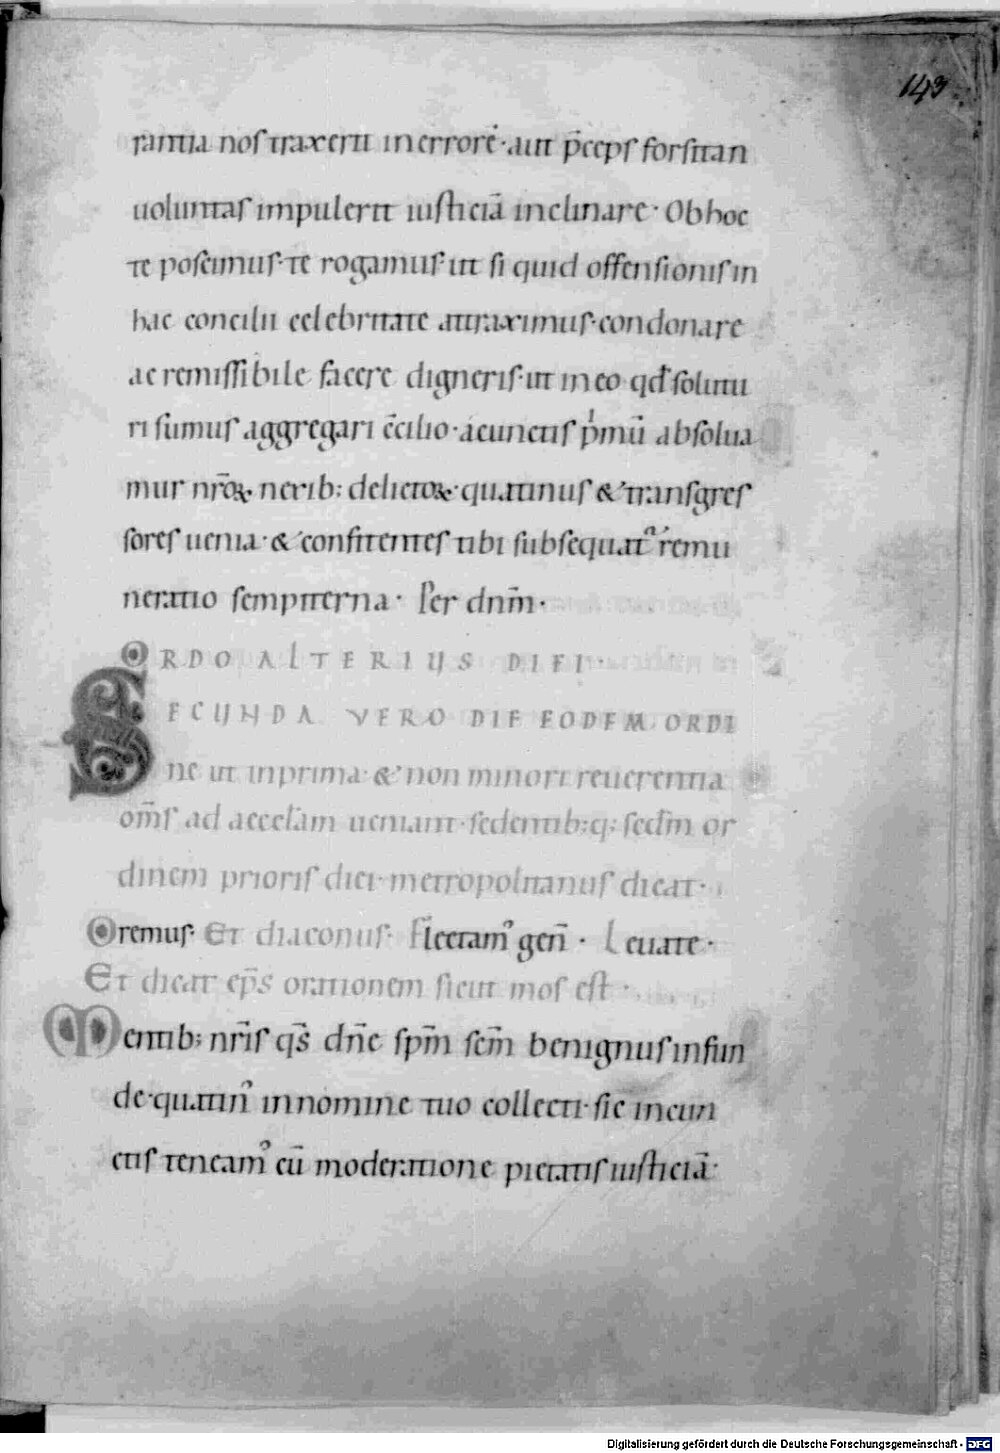 143
rantia nos traxerit in errorē· aut p̄ceps forsitan
uoluntas impulerit iusticiā inclinare· Ob hoc
te poscimus· te rogamus· ut si quid offensionis in
hac concilii celebritate attraximus· condonare
ac remissibile facere digneris· ut in eo qđ solutu
ri sumus aggregari c̄cilio· a cunctis p̍mū absolua
mur nr̄oꝝ nexib; delictoꝝ· quatinus & transgres
sores uenia· & confitentes tibi subsequat᷑ remu
neratio sempiterna· Per dnm̄·
ORDO ALTERIUS DIEI·
SECUNDA VERO DIE EODEM ORDI
ne ut in prima· & non minori reuerentia
om̄s ad aecclam̄ ueniant· sedentib;q; scdm̄ or
dinem prioris diei· metropolitanus dicat·
Oremus· Et diaconus· Flectamꝰ gen̄· Leuate·
Et dicat ep̄s orationem sicut mos est·
Mentib; nr̄is qs̄ dn̄e spm̄ scm̄ benignus infun
de· quatinꝰ in nomine tuo collecti· sic in cun
ctis teneamꝰ cū moderatione pietatis iusticiā·
Digitalisierung gefördert durch die Deutsche Forschungsgemeinschaft - DFG